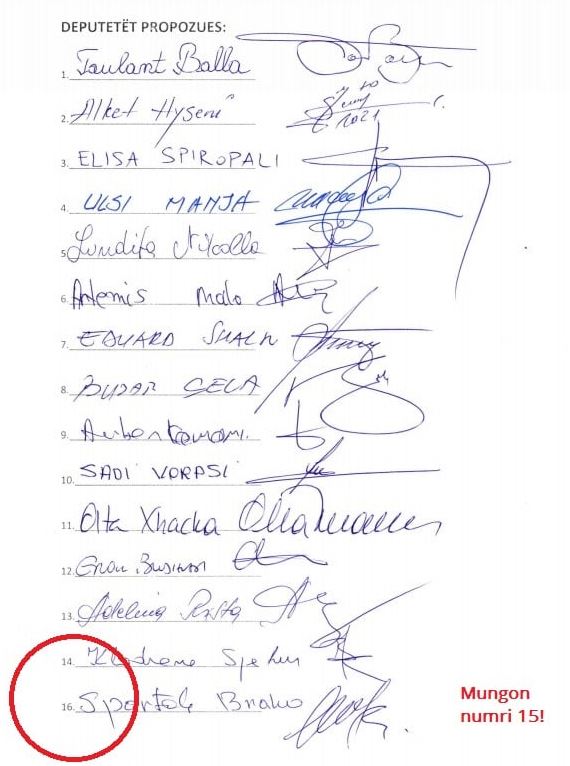 DEPUTETËT PROPOZUES:
1. Taulant Balla
2. Alket Hyseni
2021
3. ELISA SPIROPALI
4. ULSI MANJA
5. Lindita Nikolla
6. Artemis Malo
7. EDUARD SHALSI
8. BUJAR ÇELA
9. Arben Kamami.
10. SADI VORPSI
11. Olta Xhacka
12. Grou
13. Adelina Rista
14. Klodiana Spahiu
16. Spartak Braho
Mungon
numri 15!